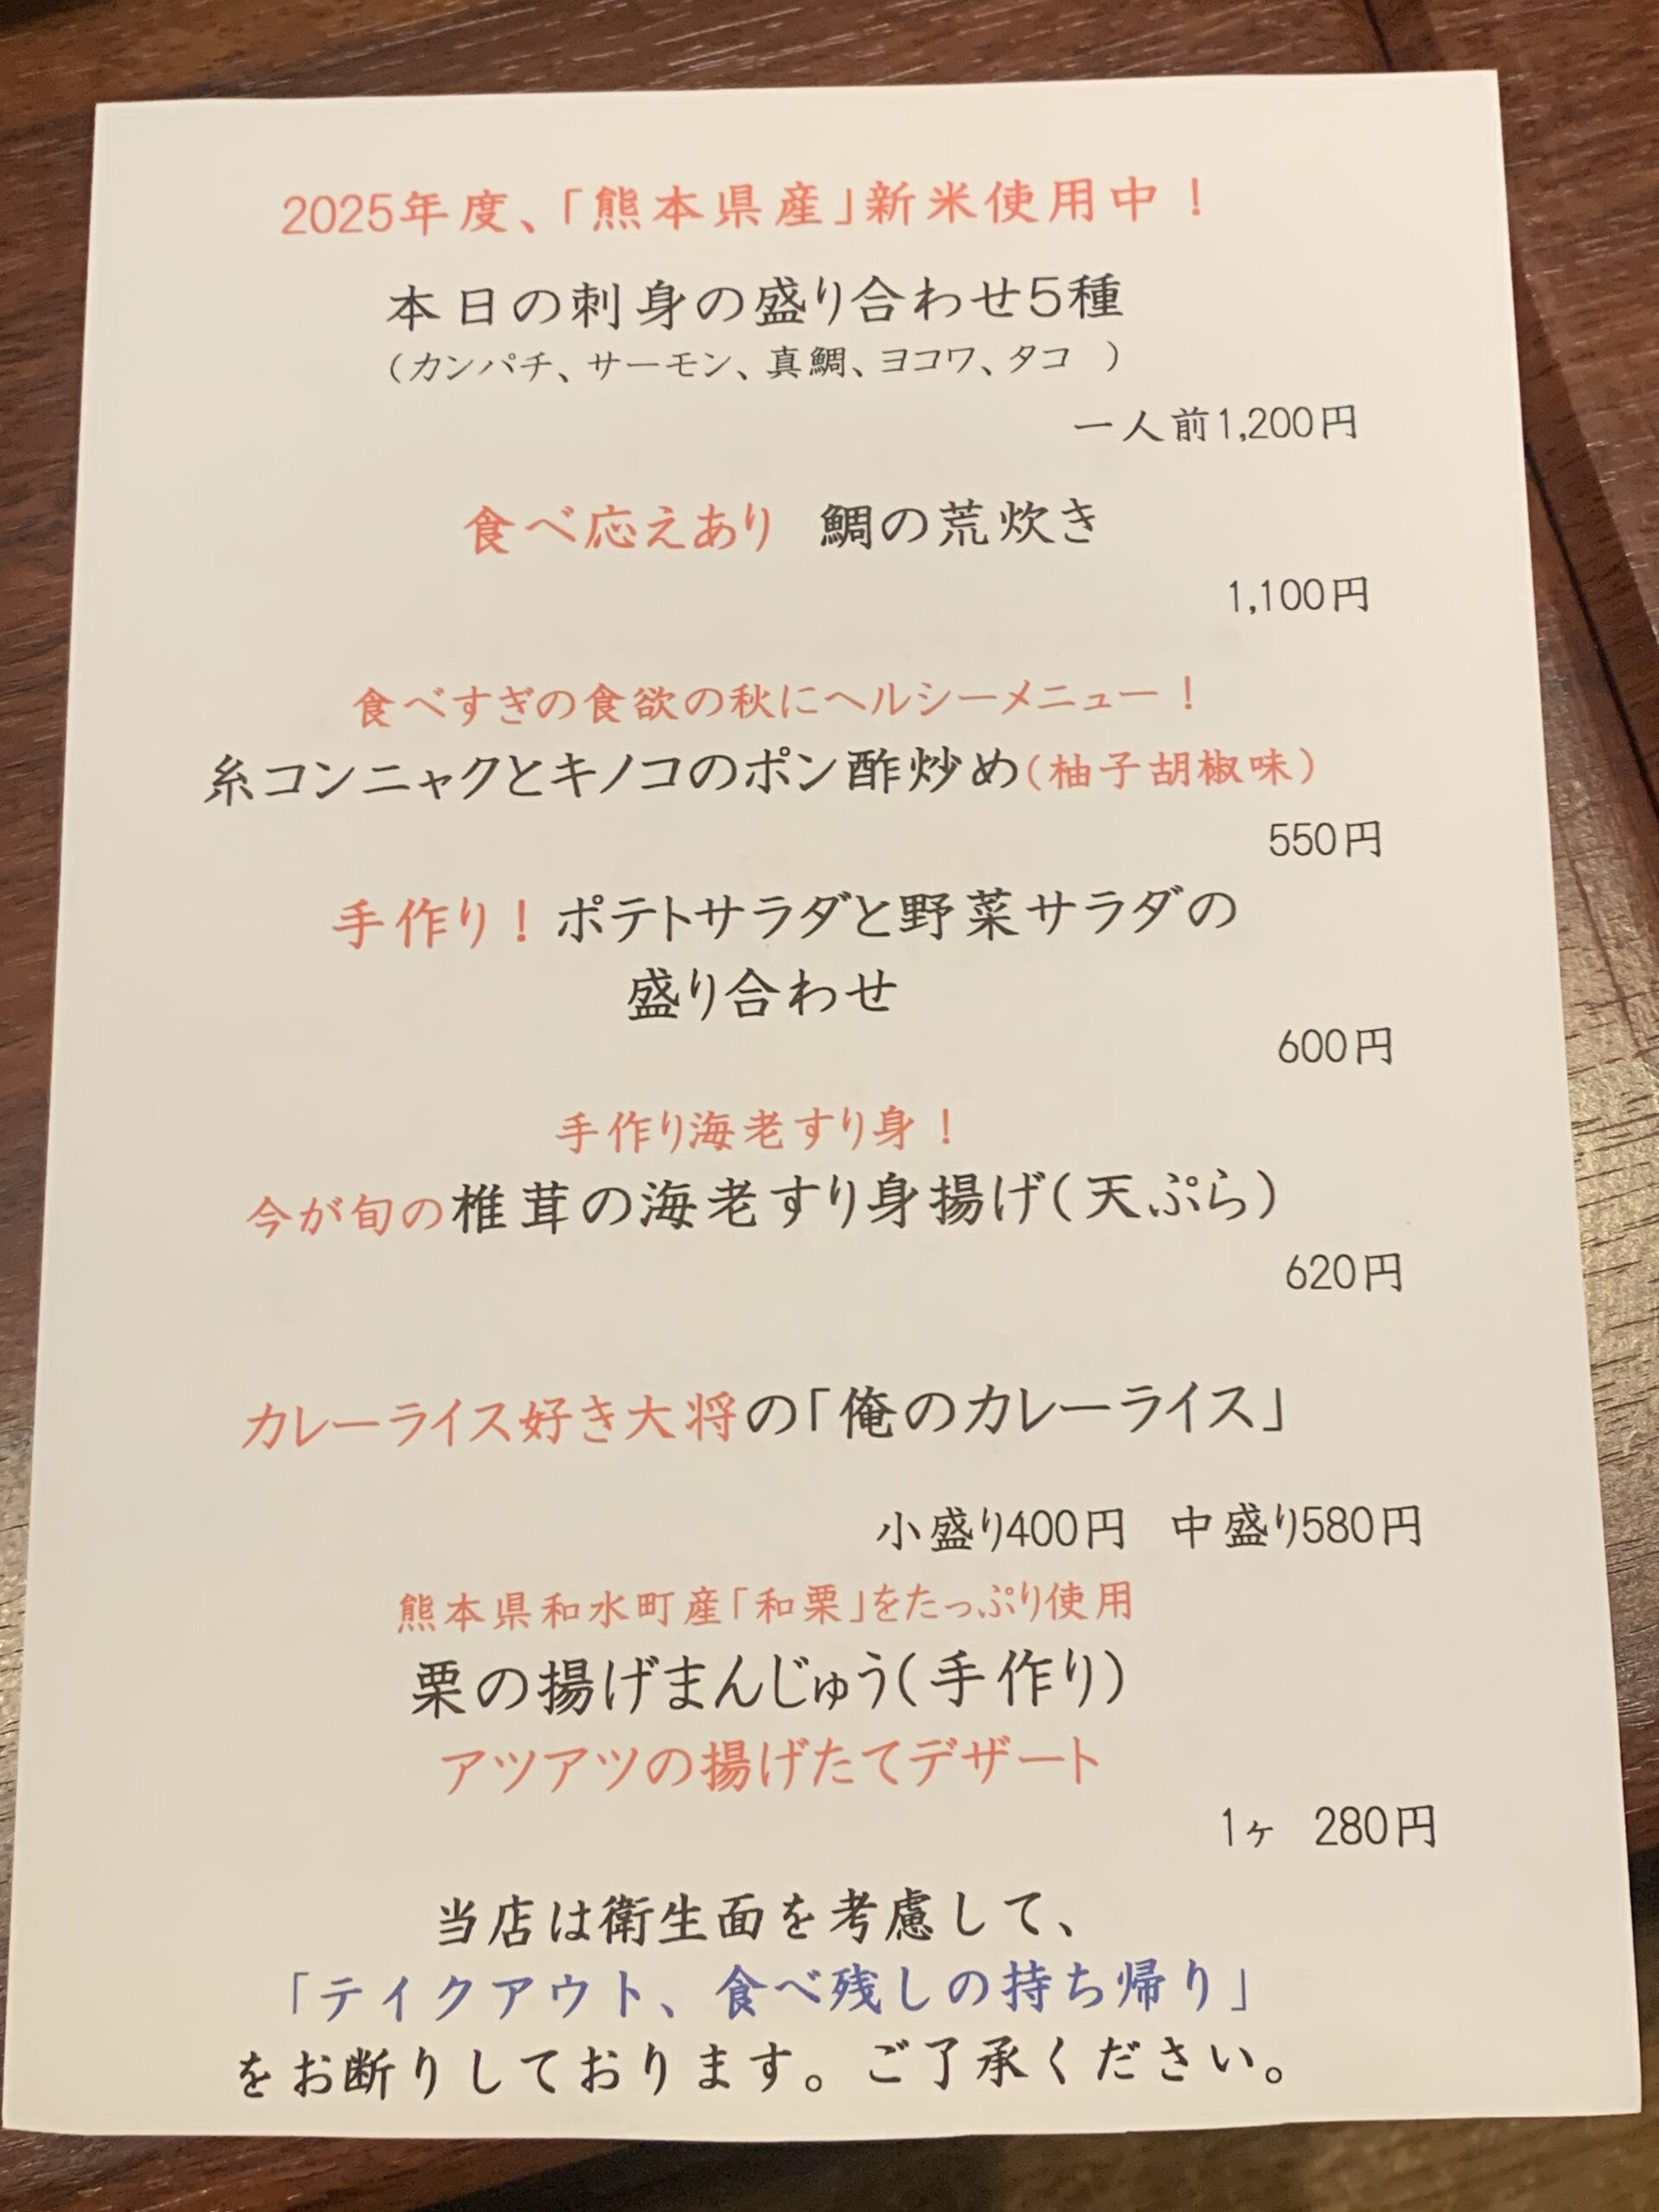 2025年度、「熊本県産」新米使用中！
本日の刺身の盛り合わせ5種
（カンパチ、サーモン、真鯛、ヨコワ、タコ　）
一人前1,200円
食べ応えあり　鯛の荒炊き
1,100円
食べすぎの食欲の秋にヘルシーメニュー！
糸コンニャクとキノコのポン酢炒め（柚子胡椒味）
550円
手作り！ポテトサラダと野菜サラダの
盛り合わせ
600円
手作り海老すり身！
今が旬の椎茸の海老すり身揚げ（天ぷら）
620円
カレーライス好き大将の「俺のカレーライス」
小盛り400円　中盛り580円
熊本県和水町産「和栗」をたっぷり使用
栗の揚げまんじゅう（手作り）
アツアツの揚げたてデザート
1ヶ　280円
当店は衛生面を考慮して、
「テイクアウト、食べ残しの持ち帰り」
をお断りしております。ご了承ください。